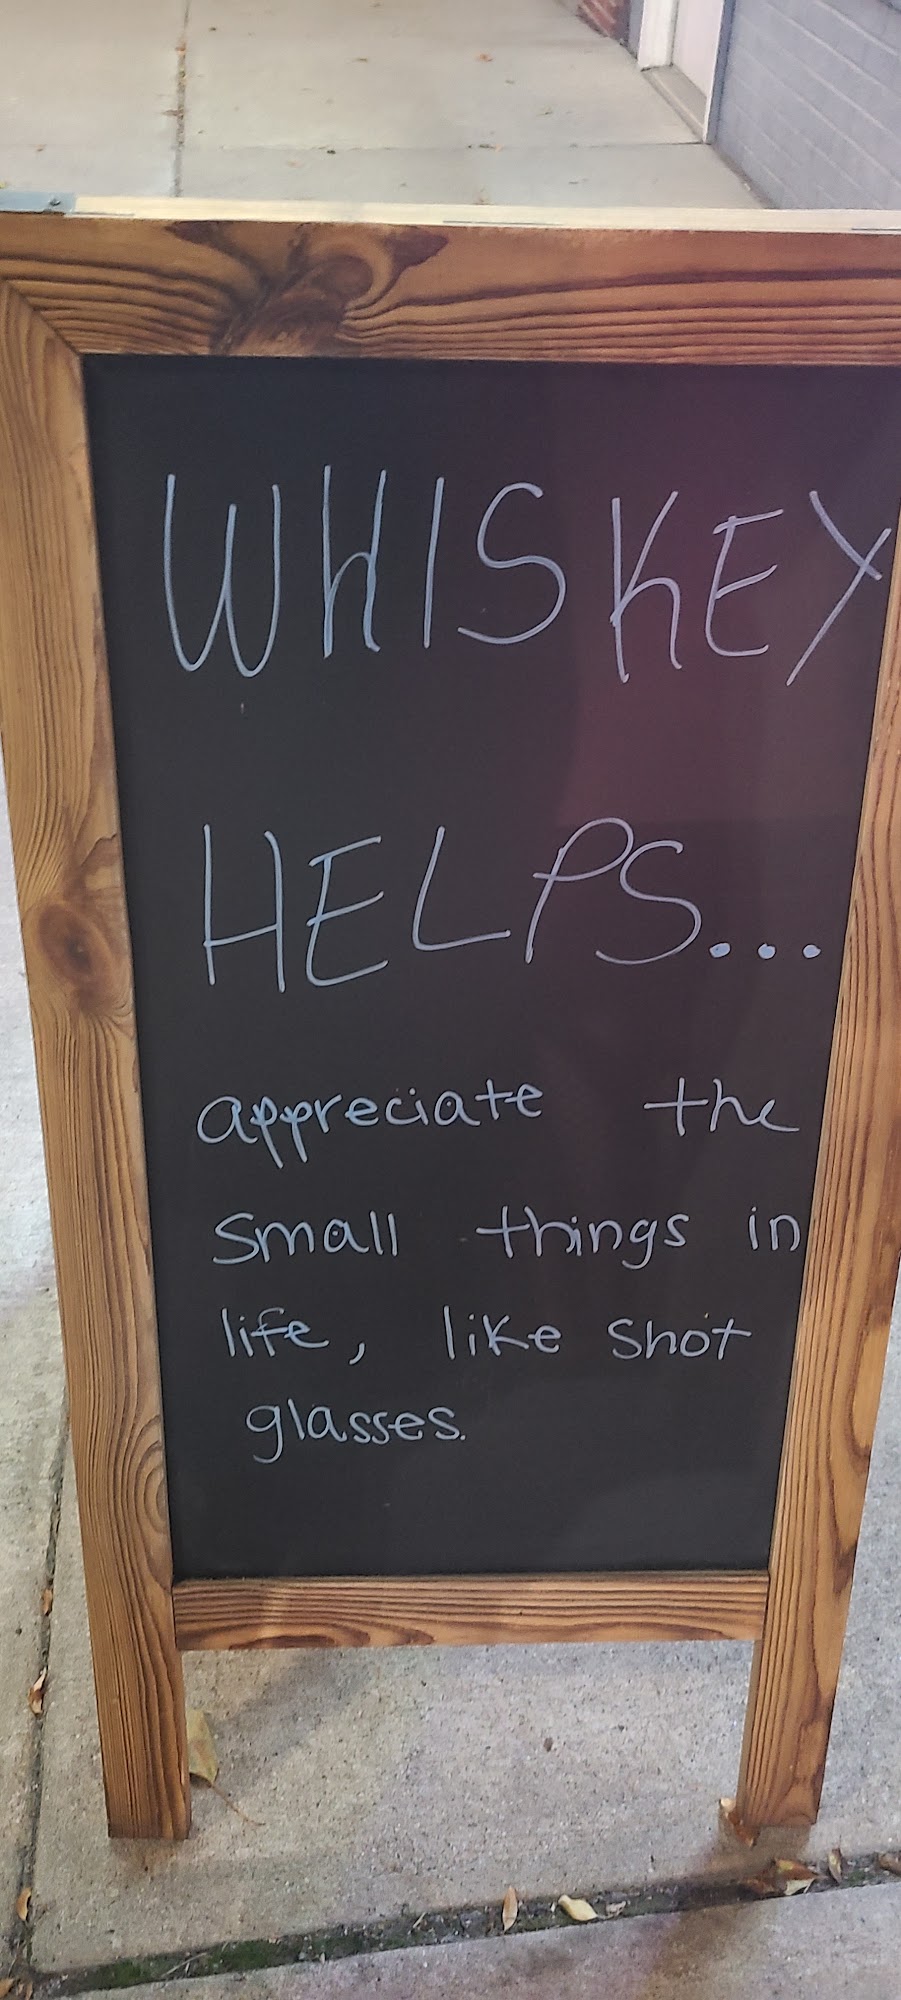 WHISKEY
HELPS...
appreciate the
small things in
life, like shot
glasses.